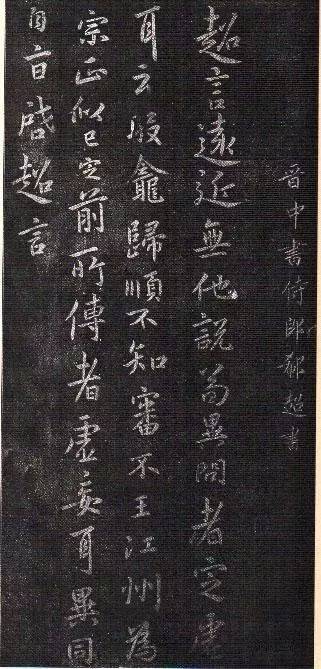 晉中書侍郎郗超書
超言遠近無他說前異問者定虛
耳云殷龕歸順不知審不王江州為
宗正似已定前所傳者虛妄耳異同
自旨啟超言